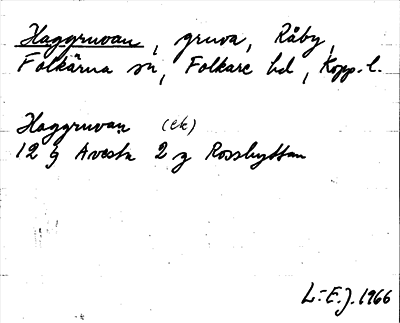 Haggruvan, gruva, Råby,
Folkärna sn, Folkare hd, Kopp. l.
Haggruvan (ek)
12 g Avesta 2 z Rosshyttan
L.-E.J. 1966